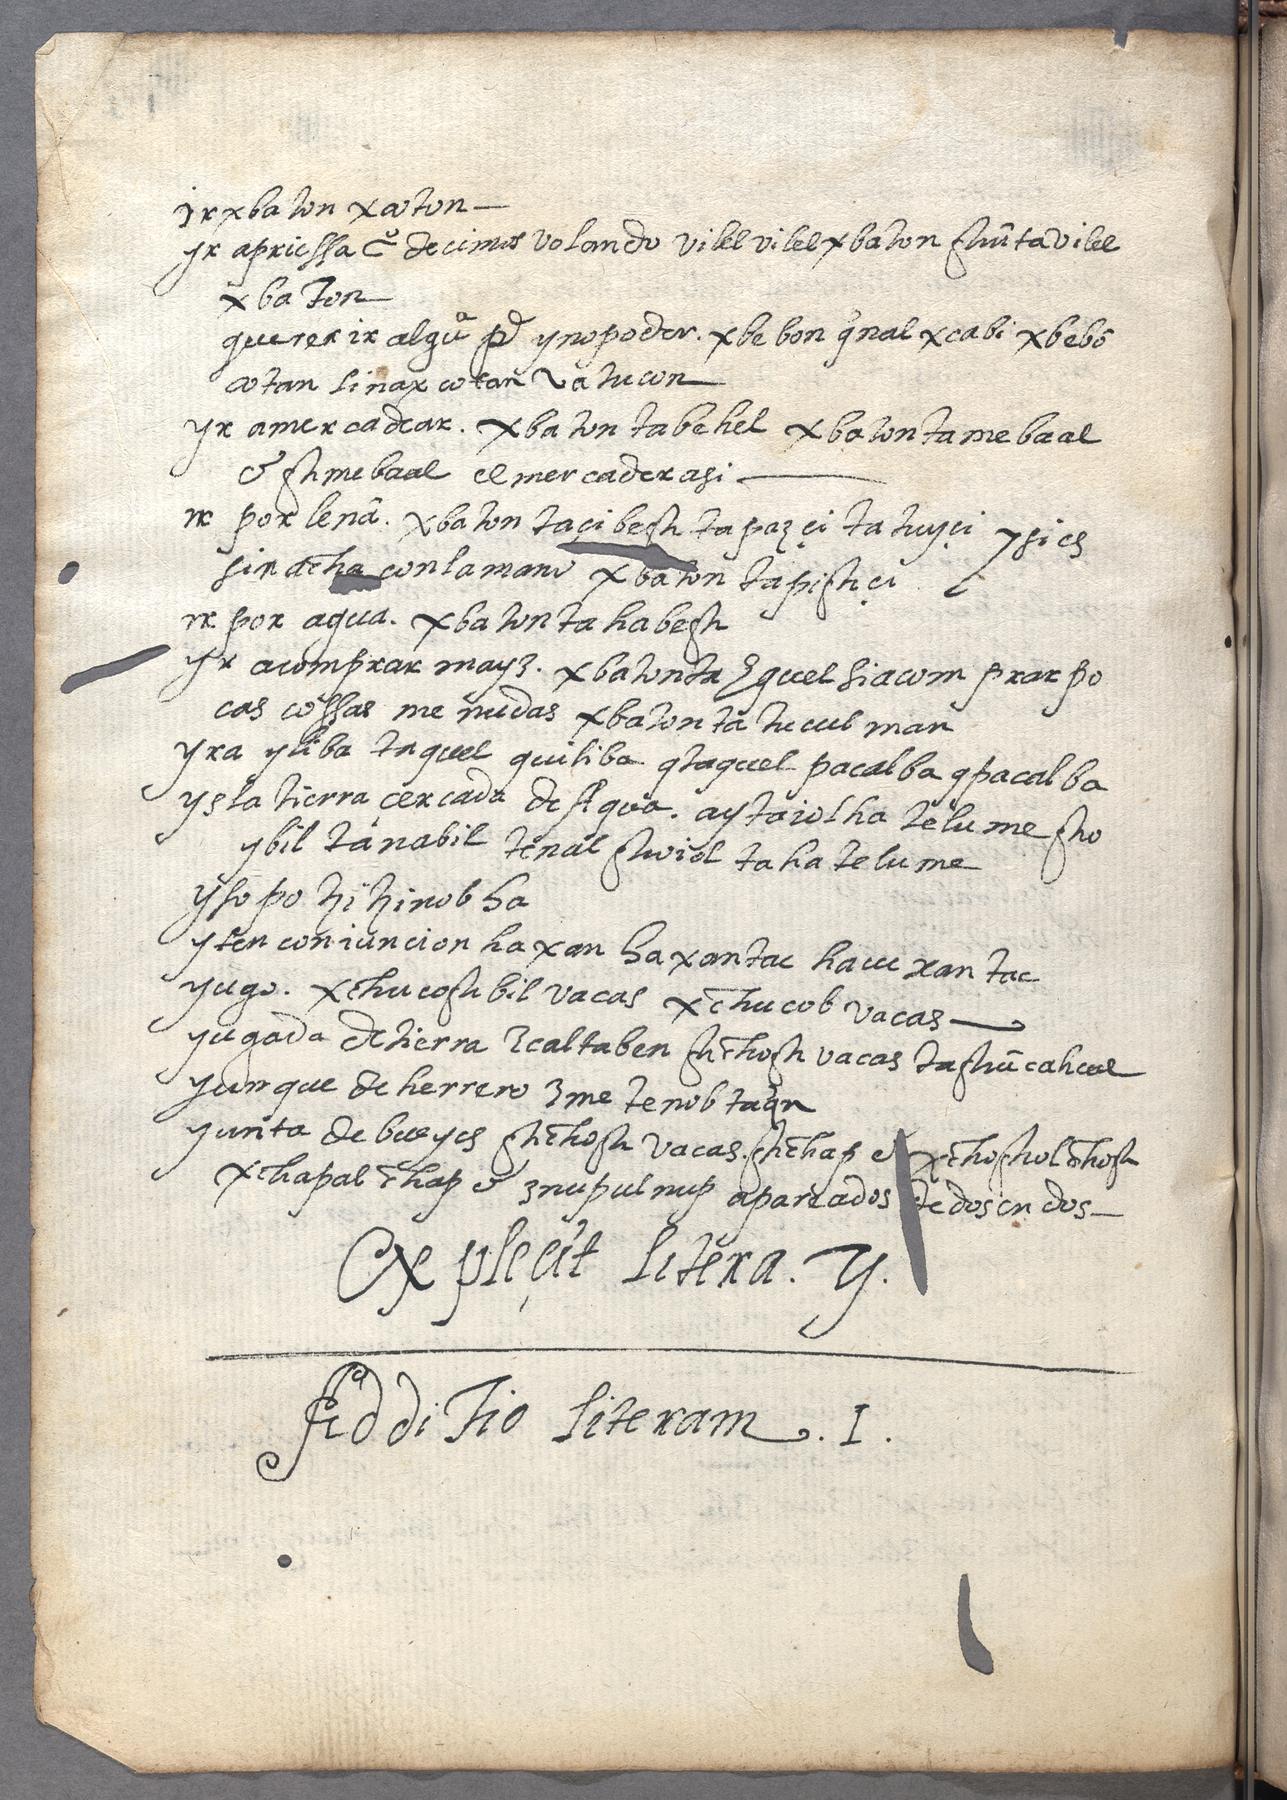 yr xbaton xcoton
yr apriessa cũ decimos volando vilel vilel xbaton ghũta vilel
xbaton
querer ir algũa pte y no poder. xbe bon qnal xcabi xbebõ
cotan sinax cotan vatucon
yr a mercadear. xbaton tabehel xbaton tamebaal
ghmebaal el mercader asi
yr por leña. xbaton taçi begh tapazçi tatuyçi y si es
sin acha con la mano xbaton tapighçi
yr por agua. xbaton tahabegh
yr a comprar mayz. xbatonta zquel si a comprar po
cas cossas menudas xbaton ta tucul man
yra yliba taquel quiliba qtaquel pacalba qpacalba
ysla tierra cercada de Aqua. aytaiolha telume gho
ybil tanabil tenal ghoiol taha telume
ysopo tzitzinobha
yten conjuncion haxan haxantac hauexantac
yugo. xchucoghbil vacas xchucob vacas
yugada de tierra zcaltaben ghchogh vacas taghũcahcal
yunque de herrero zmetenob taqn
yunta de bueyes ghchogh vacas. ghchap xchogholchogh
xchapalchap znupulnup apareados de dos en dos
Explecit litera. Y.
Additio literam. I.